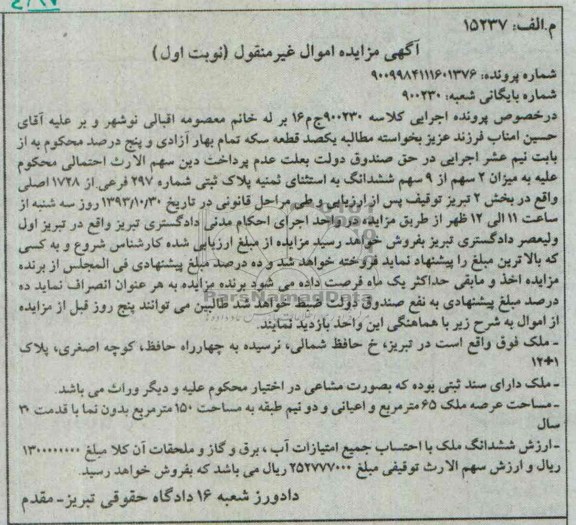 ۴/۱۷
م.الف: ۱۵۲۳۷
آگهی مزایده اموال غیرمنقول (نوبت اول)
شماره پرونده: ۹۰۰۹۹۸۴۱۱۱۶۰۱۳۷۶
شماره بایگانی شعبه: ۹۰۰۲۳۰
درخصوص پرونده اجرایی کلاسه ۹۰۰۲۳۰ج م۱۶ بر له خانم معصومه اقبالی نوشهر و بر علیه آقای
حسین امناب فرزند عزیز بخواسته مطالبه یکصد قطعه سکه تمام بهار آزادی و پنج درصد محکوم به از
بابت نیم عشر اجرایی در حق صندوق دولت بعلت عدم پرداخت دین سهم الارث احتمالی محکوم
علیه به میزان ۲ سهم از ۹ سهم ششدانگ به استثنای ثمنیه پلاک ثبتی شماره ۲۹۷ فرعی از ۱۷۲۸ اصلی
واقع در بخش ۲ تبریز توقیف پس از ارزیابی و طی مراحل قانونی در تاریخ ۱۳۹۳/۱۰/۳۰ روز سه شنبه از
ساعت ۱۱ الی ۱۲ ظهر از طریق مزایده در واحد اجرای احکام مدنی دادگستری تبریز واقع در تبریز اول
ولیعصر دادگستری تبریز بفروش خواهد رسید مزایده از مبلغ ارزیابی شده کارشناس شروع و به کسی
که بالاترین مبلغ را پیشنهاد نماید فروخته خواهد شد و ده درصد مبلغ پیشنهادی فی المجلس از برنده
مزایده اخذ و مابقی حداکثر یک ماه فرصت داده می شود برنده مزایده به هر عنوان انصراف نماید ده
درصد مبلغ پیشنهادی به نفع صندوق دولت ضبط خواهد شد. طالبین می توانند پنج روز قبل از مزایده
از اموال به شرح زیر با هماهنگی این واحد بازدید نمایند.
ParsNamadData
- ملک فوق واقع است در تبریز، خ حافظ شمالی، نرسیده به چهارراه حافظ، کوچه اصغری، پلاک
۱۲+۱
- ملک دارای سند ثبتی بوده که بصورت مشاعی در اختیار محکوم علیه و دیگر وراث می باشد.
- مساحت عرصه ملک ۶۵ مترمربع و اعیانی و دو نیم طبقه به مساحت ۱۵۰ مترمربع بدون نما با قدمت ۳۰
سال
- ارزش ششدانگ ملک با احتساب جمیع امتیازات آب ، برق و گاز و ملحقات آن کلا مبلغ ۱۳۰۰۰۰۰۰۰۰
ریال و ارزش سهم الارث توقیفی مبلغ ۲۵۲۷۷۷۰۰۰ ریال می باشد که بفروش خواهد رسید.
دادورز شعبه ۱۶ دادگاه حقوقی تبریز - مقدم